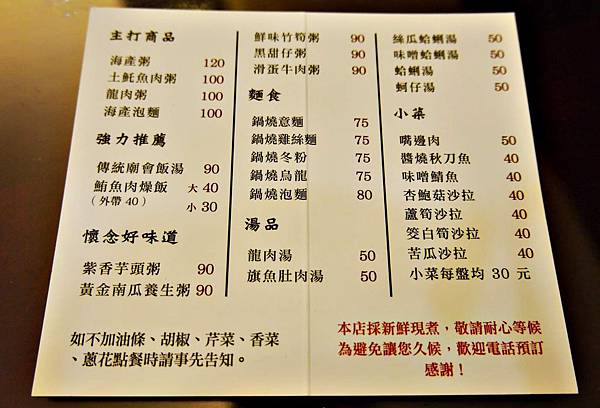 主打商品
海產粥 120
土魠魚肉粥 100
龍肉粥 100
海產泡麵 100
強力推薦
傳統廟會飯湯 90
鮪魚肉燥飯 大 40
（外帶 40） 小 30
懷念好味道
紫香芋頭粥 90
黃金南瓜養生粥 90
鮮味竹筍粥 90
黑甜仔粥 90
滑蛋牛肉粥 90
麵食
鍋燒意麵 75
鍋燒雞絲麵 75
鍋燒冬粉 75
鍋燒烏龍 75
鍋燒泡麵 80
湯品
龍肉湯 50
旗魚肚肉湯 50
絲瓜蛤蜊湯 50
味噌蛤蜊湯 50
蛤蜊湯 50
蚵仔湯 50
小菜
嘴邊肉 50
醬燒秋刀魚 40
味噌鯖魚 40
杏鮑菇沙拉 40
蘆筍沙拉 40
筊白筍沙拉 40
苦瓜沙拉 40
小菜每盤均 30 元
如不加油條、胡椒、芹菜、香菜
、蔥花點餐時請事先告知。
本店採新鮮現煮，敬請耐心等候
為避免讓您久候，歡迎電話預訂
感謝！